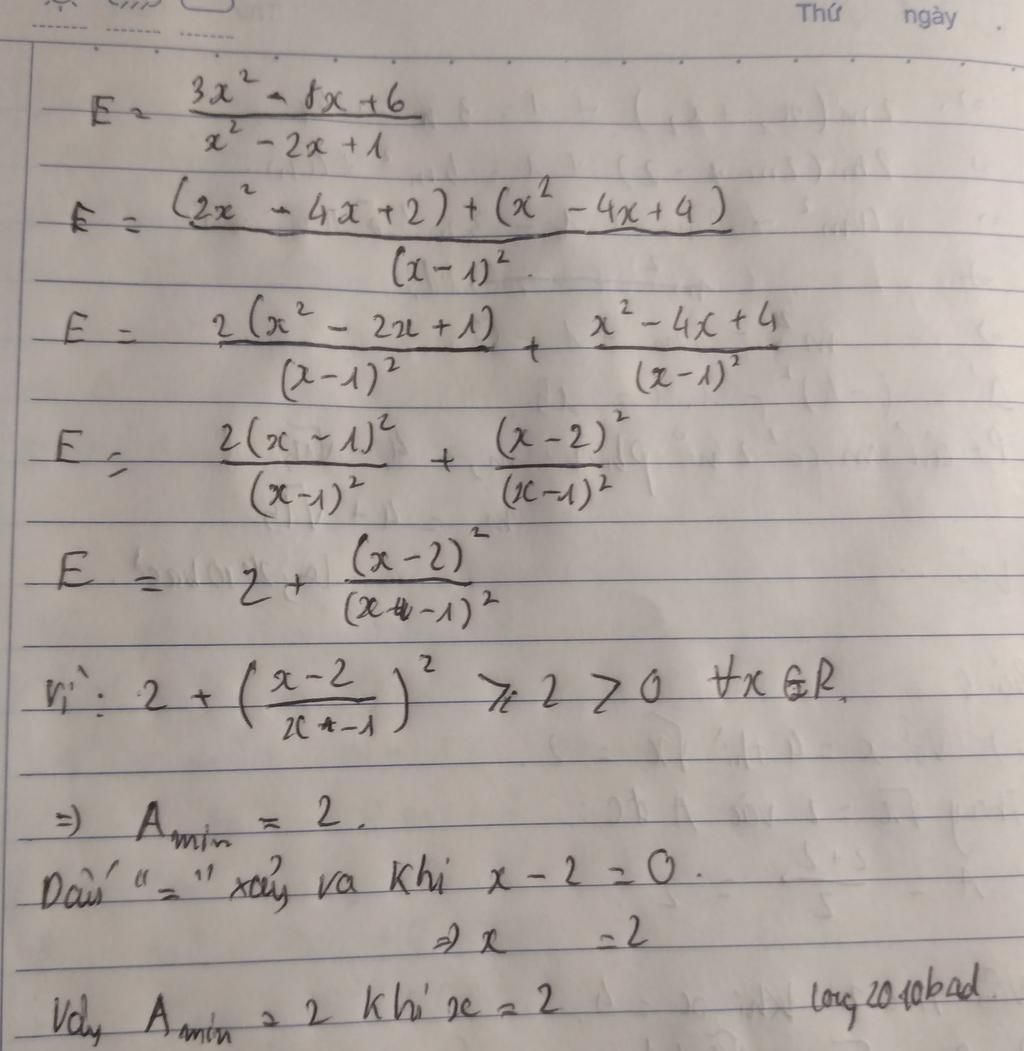 Thứ ngày .
E = (3x² - 8x + 6)/(x² - 2x + 1)
E = ((2x² - 4x + 2) + (x² - 4x + 4))/(x - 1)²
E = 2(x² - 2x + 1)/(x - 1)² + (x² - 4x + 4)/(x - 1)²
E = 2(x - 1)²/(x - 1)² + (x - 2)²/(x - 1)²
E = 2 + (x - 2)²/(x - 1)²
Vì: 2 + ((x - 2)/(x - 1))² ⩾ 2 > 0 ∀x ∈ R.
=> A min = 2.
Dấu "=" xảy ra khi x - 2 = 0.
=> x = 2
Vậy A min = 2 Khi x = 2 long2010bad